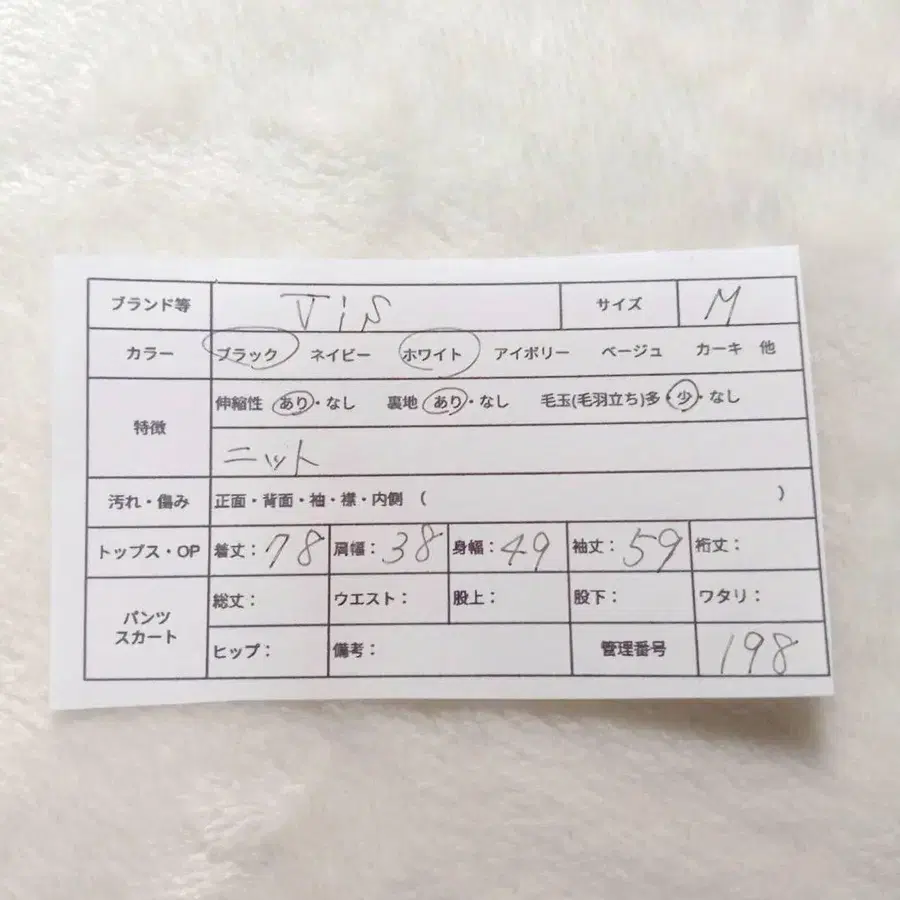 ブランド等 ViS サイズ M
カラー ブラック ネイビー ホワイト アイボリー ベージュ カーキ 他
特徴 伸縮性 あり・なし 裏地 あり・なし 毛玉(毛羽立ち)多・少・なし
ニット
汚れ・傷み 正面・背面・袖・襟・内側 ( )
トップス・OP 着丈：78 肩幅：38 身幅：49 袖丈：59 裄丈：
パンツ スカート 総丈： ウエスト： 股上： 股下： ワタリ：
ヒップ： 備考： 管理番号 198